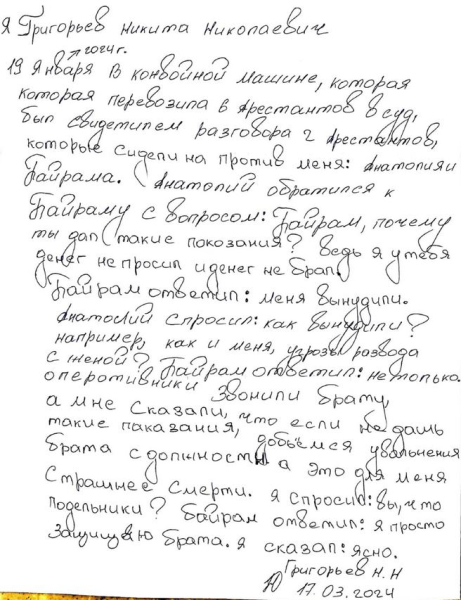 Я Григорьев Никита Николаевич
2024г.
19 января в конвойной машине, которая
которая перевозила в арестантов в суд,
был свидетилем разговора 2 арестантов,
которые сидели на против меня: Анатолия и
Байрама. Анатолий обратился к
Байраму с вопросом: Байрам, почему
ты дал такие покозания? Ведь я у тебя
денег не просил и денег не брал.
Байрам ответил: меня вынудили.
Анатолий спросил: как вынудили?
например, как и меня, угрозы развода
с женой? Байрам ответил: не только.
оперотивники звонили брату,
а мне сказали, что если не дашь
такие паказания, добьёмся увальнения
брата с должности а это для меня
страшнее смерти. я спросил: вы, что
подельники? Байрам ответил: я просто
защищаю брата. я сказал: ясно.
Григорьев Н.Н
17.03.2024